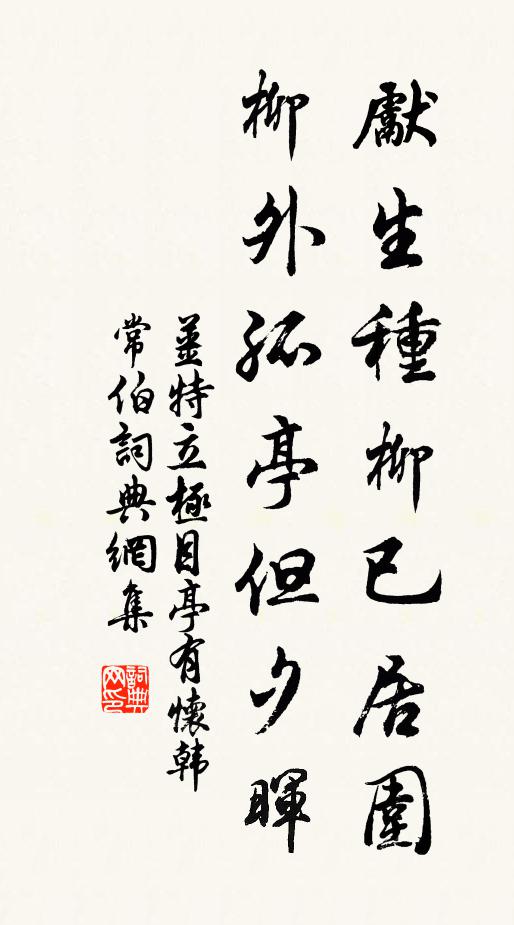 獻生種柳已居圍
柳外孤亭但夕暉
薑特立極目亭有懷韩
常伯詞典網集
詞典网印